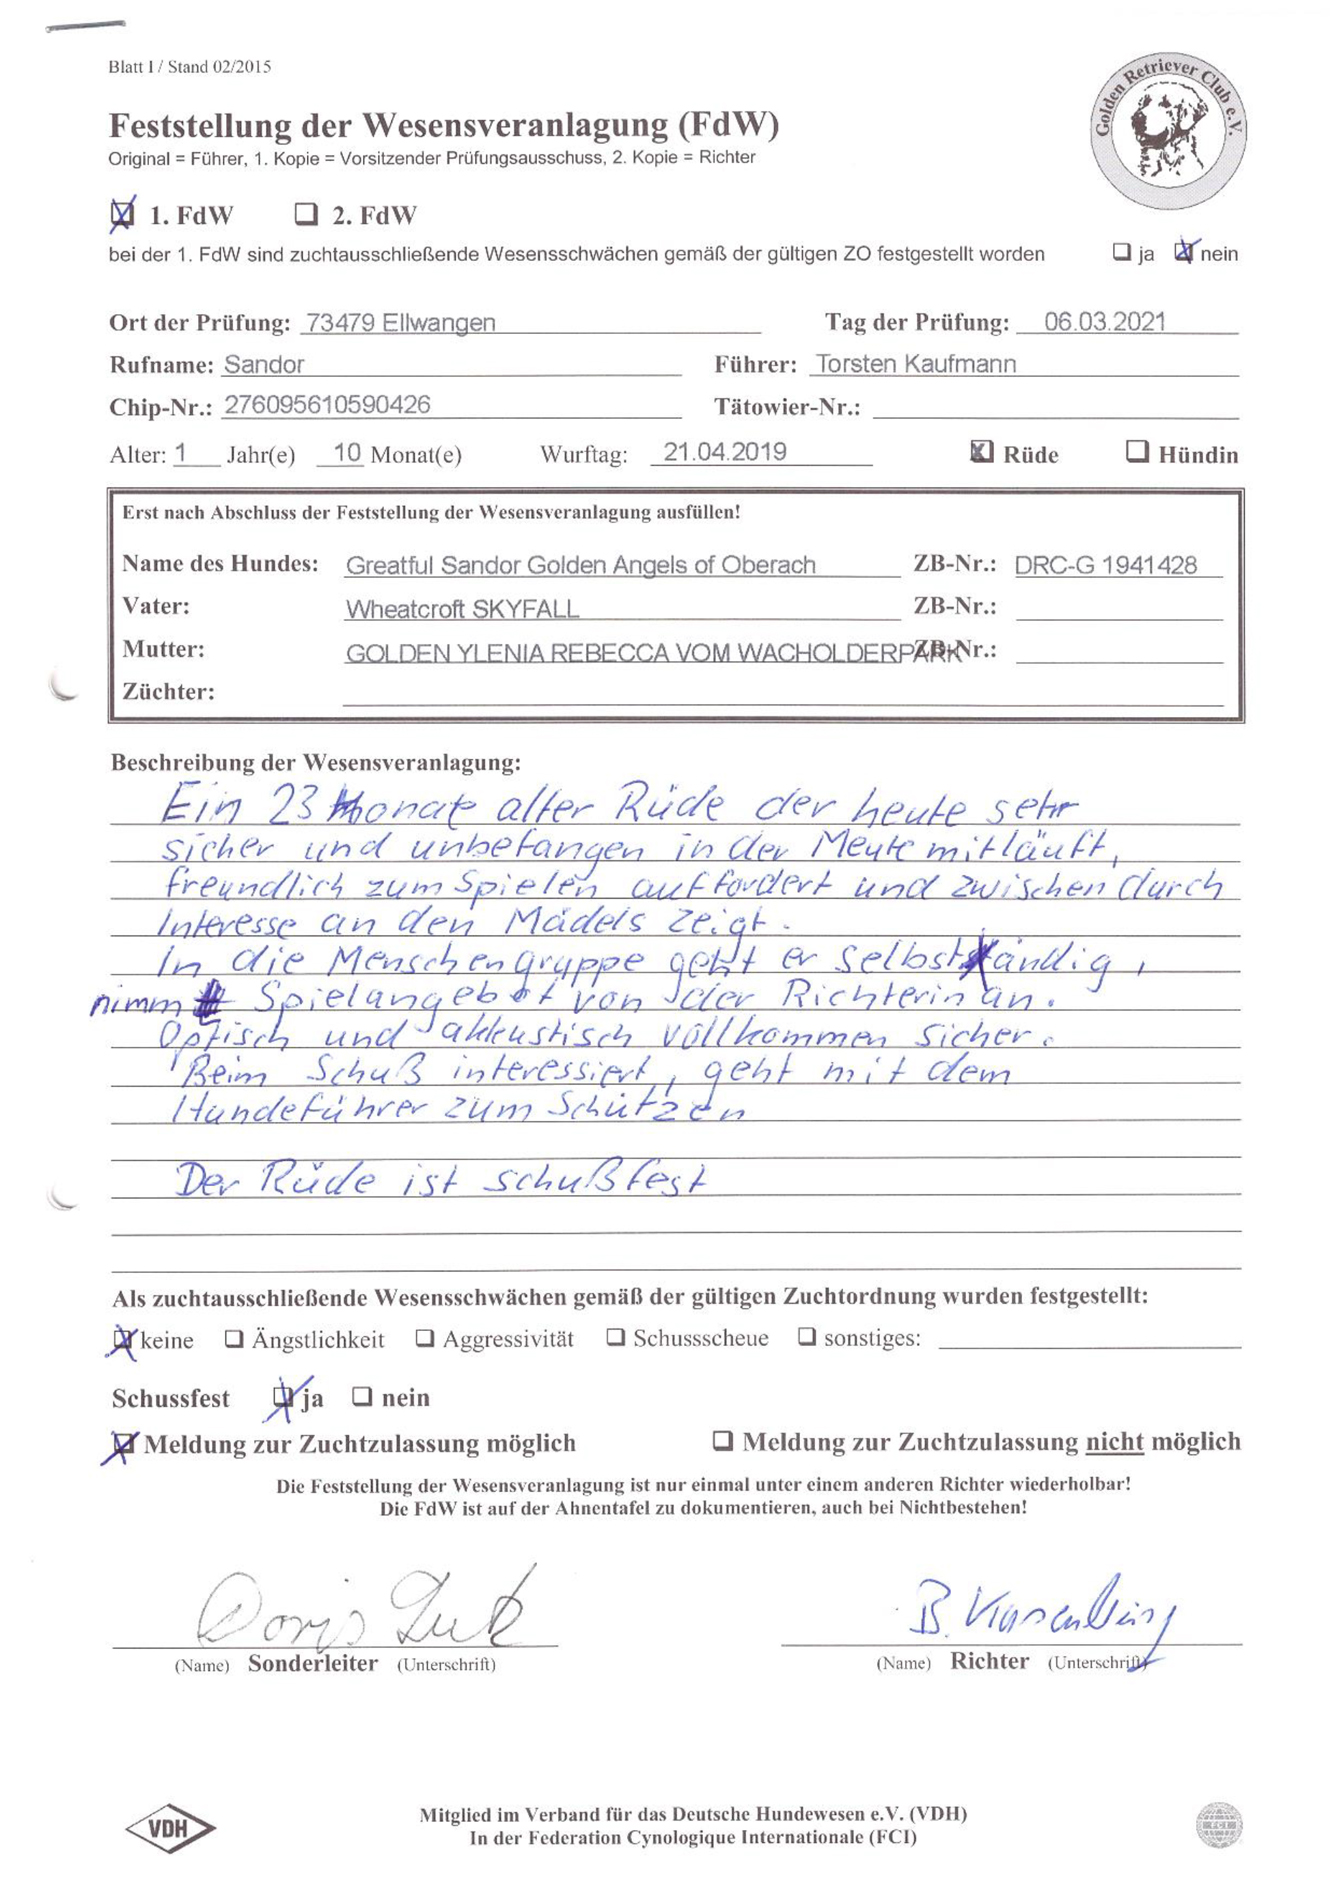 Blatt I / Stand 02/2015
Golden Retriever Club e.V.
Feststellung der Wesensveranlagung (FdW)
Original = Führer, 1. Kopie = Vorsitzender Prüfungsausschuss, 2. Kopie = Richter
1. FdW 2. FdW
bei der 1. FdW sind zuchtausschließende Wesensschwächen gemäß der gültigen ZO festgestellt worden ja nein
Ort der Prüfung: 73479 Ellwangen Tag der Prüfung: 06.03.2021
Rufname: Sandor Führer: Torsten Kaufmann
Chip-Nr.: 276095610590426 Tätowier-Nr.:
Alter: 1 Jahr(e) 10 Monat(e) Wurftag: 21.04.2019 Rüde Hündin
Erst nach Abschluss der Feststellung der Wesensveranlagung ausfüllen!
Name des Hundes: Greatful Sandor Golden Angels of Oberach ZB-Nr.: DRC-G 1941428
Vater: Wheatcroft SKYFALL ZB-Nr.:
Mutter: GOLDEN YLENIA REBECCA VOM WACHOLDERPARK ZB-Nr.:
Züchter:
Beschreibung der Wesensveranlagung:
Ein 23 Monate alter Rüde der heute sehr
sicher und unbefangen in der Meute mitläuft,
freundlich zum Spielen auffordert und zwischen durch
Interesse an den Mädels zeigt.
In die Menschengruppe geht er selbständig,
nimmt Spielangebot von der Richterin an.
Optisch und akkustisch vollkommen sicher.
Beim Schuß interessiert, geht mit dem
Hundeführer zum Schützen
Der Rüde ist schußfest
Als zuchtausschließende Wesensschwächen gemäß der gültigen Zuchtordnung wurden festgestellt:
keine Ängstlichkeit Aggressivität Schussscheue sonstiges:
Schussfest ja nein
Meldung zur Zuchtzulassung möglich Meldung zur Zuchtzulassung nicht möglich
Die Feststellung der Wesensveranlagung ist nur einmal unter einem anderen Richter wiederholbar!
Die FdW ist auf der Ahnentafel zu dokumentieren, auch bei Nichtbestehen!
Doris B.
(Name) Sonderleiter (Unterschrift) (Name) Richter (Unterschrift)
VDH
Mitglied im Verband für das Deutsche Hundewesen e.V. (VDH)
In der Federation Cynologique Internationale (FCI)
FCI